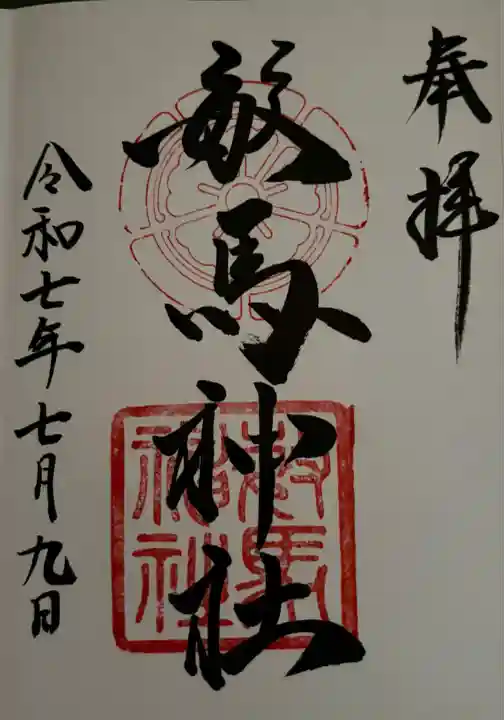 奉拝
敏馬神社
敏馬神社
令和七年七月九日